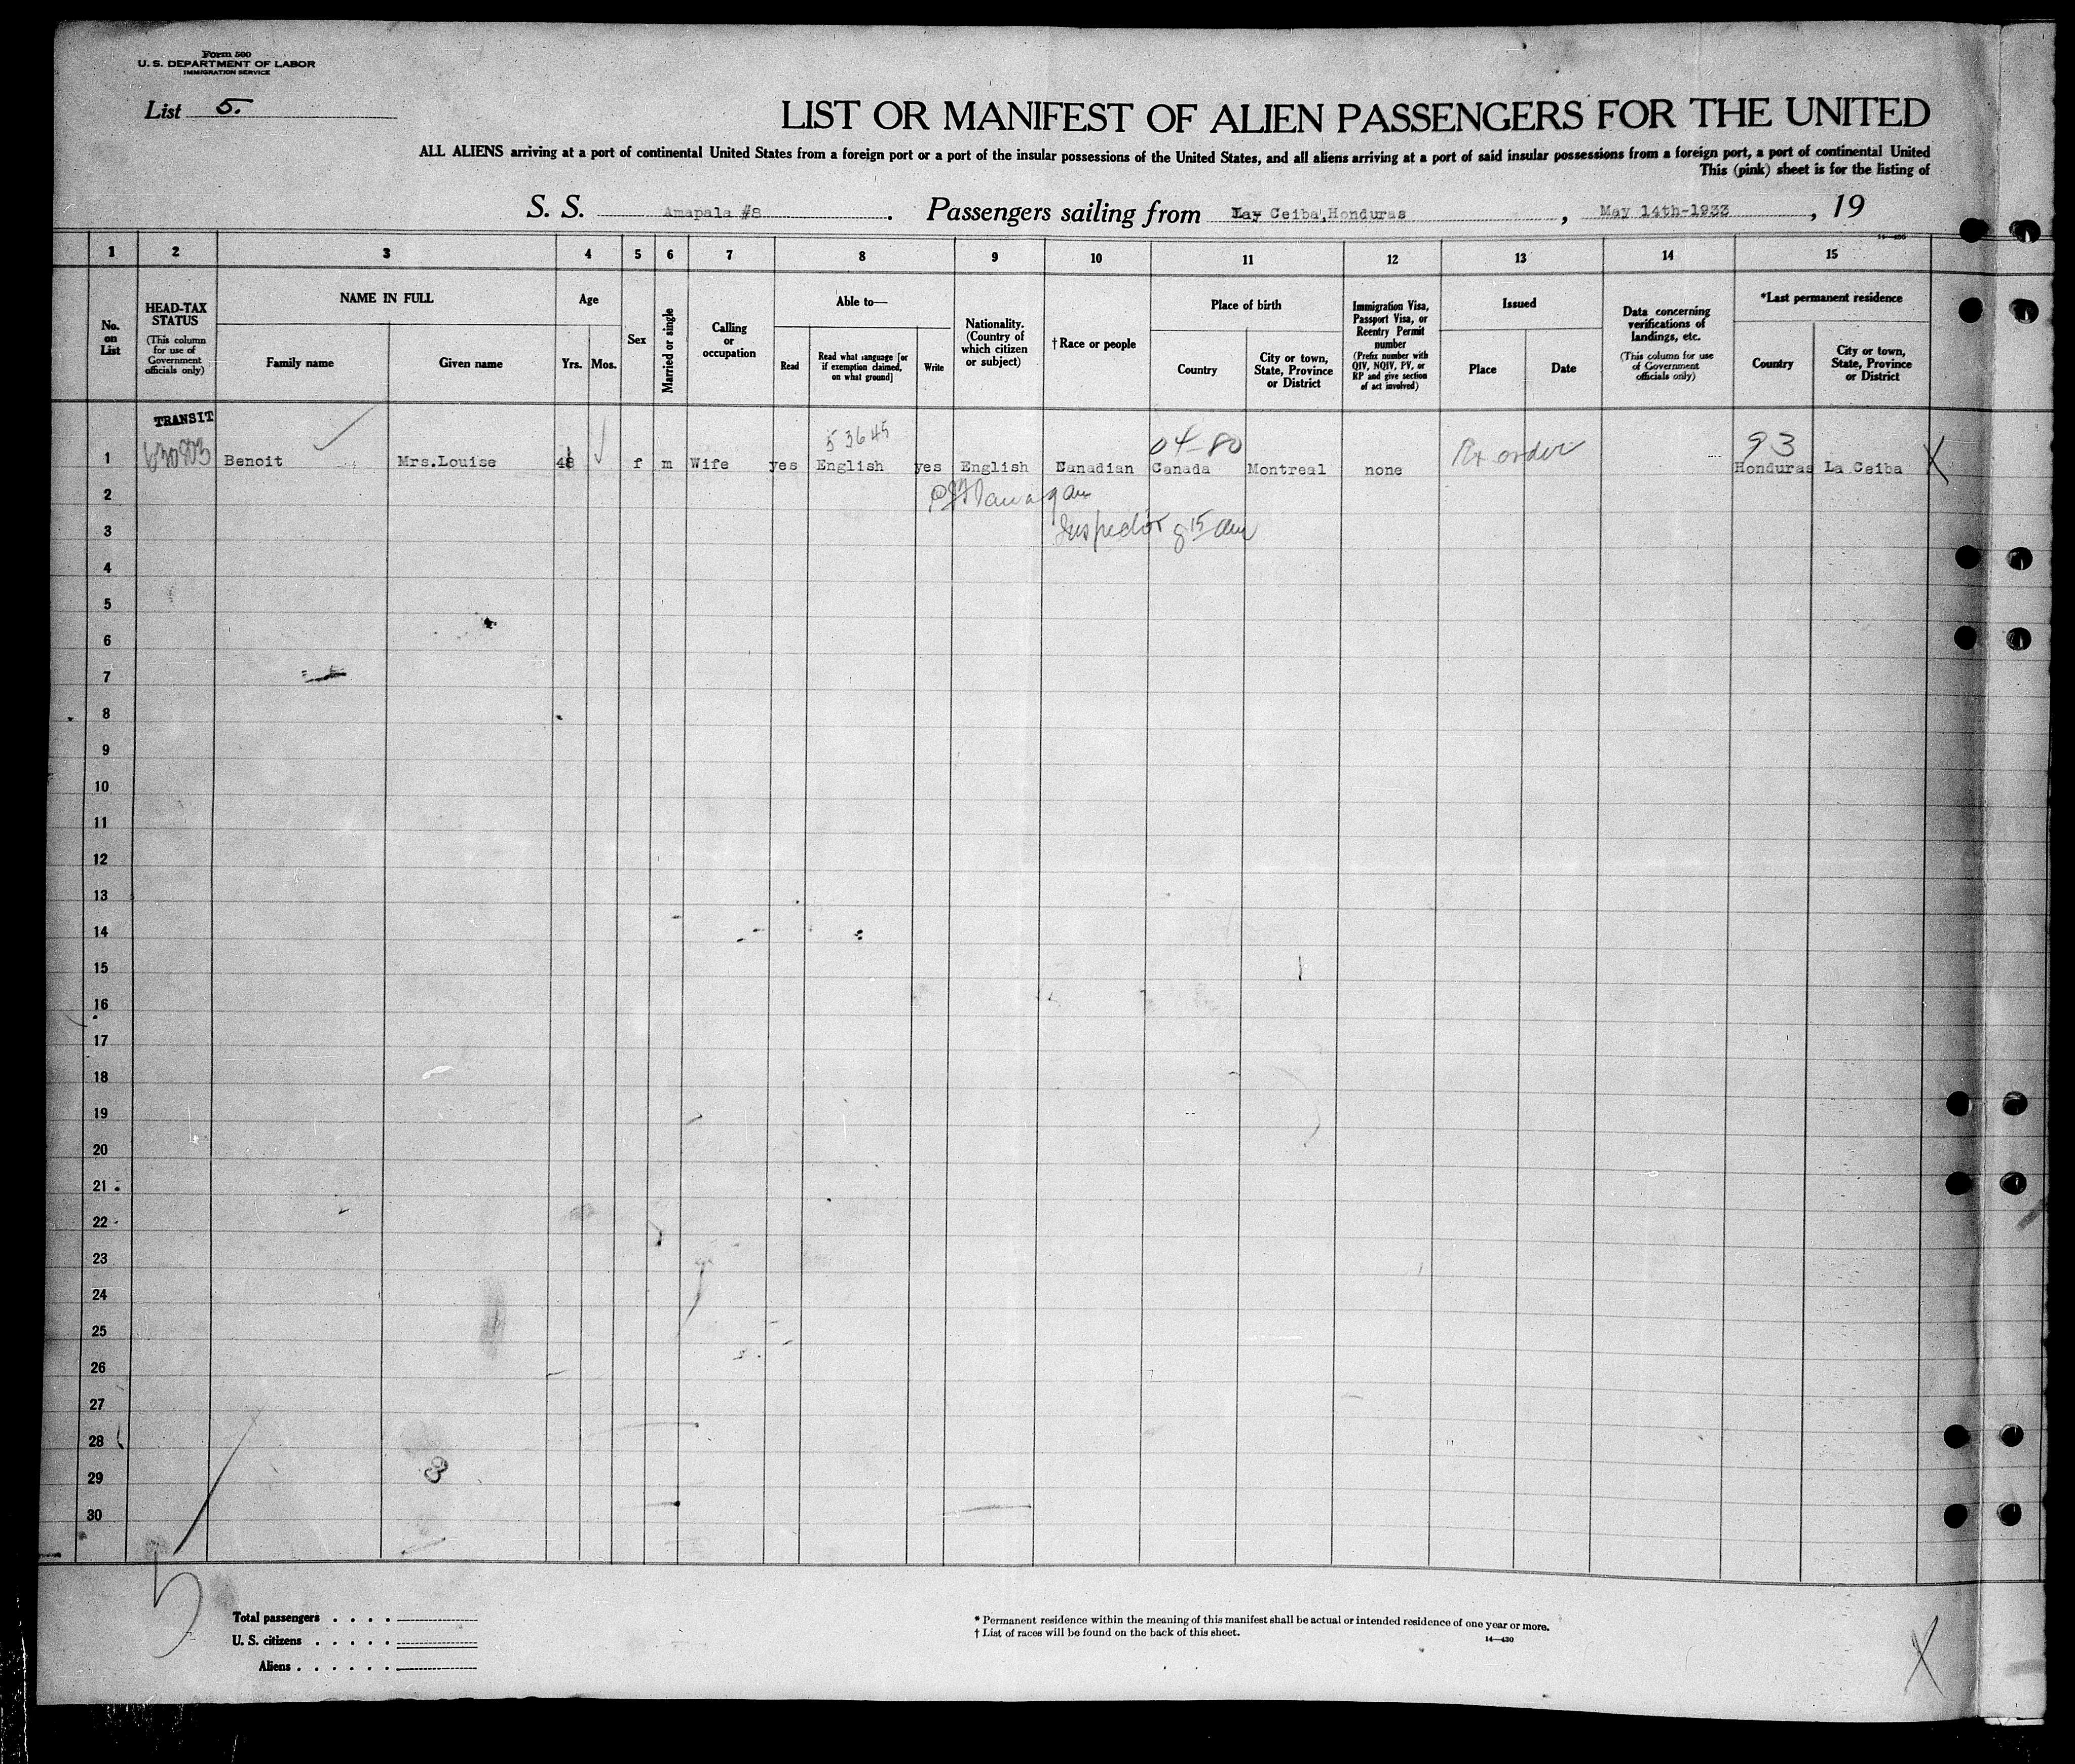 Form 500
U. S. DEPARTMENT OF LABOR
IMMIGRATION SERVICE
List 5.
LIST OR MANIFEST OF ALIEN PASSENGERS FOR THE UNITED
ALL ALIENS arriving at a port of continental United States from a foreign port or a port of the insular possessions of the United States, and all aliens arriving at a port of said insular possessions from a foreign port, a port of continental United
This (pink) sheet is for the listing of
S. S. Amapala #8 . Passengers sailing from La Ceiba, Honduras , May 14th-1933 , 19
1 2 3 4 5 6 7 8 9 10 11 12 13 14 15
No. on List
HEAD-TAX STATUS
(This column for use of Government officials only)
NAME IN FULL
Family name
Given name
Age
Yrs. Mos.
Sex
Married or single
Calling or occupation
Able to—
Read
Read what language [or if exemption claimed, on what ground]
Write
Nationality. (Country of which citizen or subject)
†Race or people
Place of birth
Country
City or town, State, Province or District
Immigration Visa, Passport Visa, or Reentry Permit number
(Prefix number with QIV, NQIV, PV, or RP and give section of act involved)
Issued
Place
Date
Data concerning verifications of landings, etc.
(This column for use of Government officials only)
*Last permanent residence
Country
City or town, State, Province or District
TRANSIT
53645
04-80
93
1 Benoit Mrs.Louise 48 f m Wife yes English yes English Canadian Canada Montreal none Honduras La Ceiba X
2
Inspector 8 15 am
3
4
5
6
7
8
9
10
11
12
13
14
15
16
17
18
19
20
21
22
23
24
25
26
27
28
29
30
5
Total passengers . . . .
U. S. citizens . . . . .
Aliens . . . . . .
* Permanent residence within the meaning of this manifest shall be actual or intended residence of one year or more.
† List of races will be found on the back of this sheet.
14—430
X